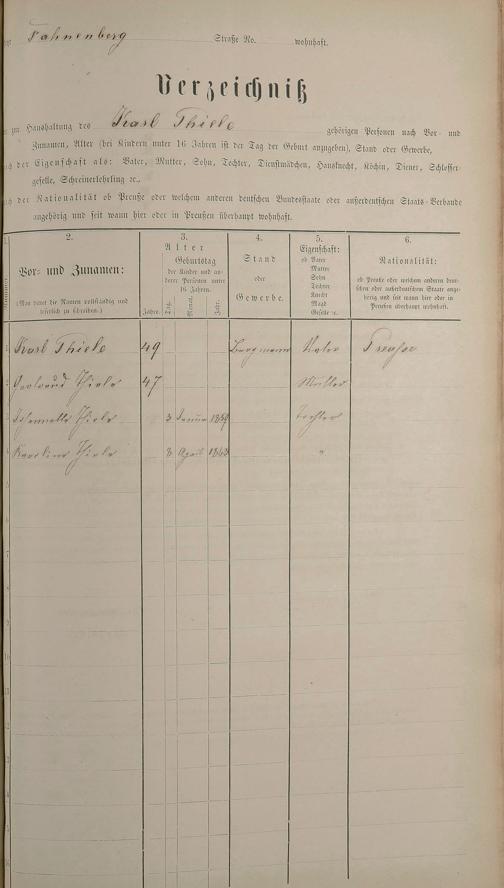 Fahnenberg Straße No. wohnhaft.
Verzeichniß
zur Haushaltung des Karl Thiele gehörigen Personen nach Vor- und
Zunamen, Alter (bei Kindern unter 16 Jahren ist der Tag der Geburt anzugeben), Stand oder Gewerbe,
der Eigenschaft als: Vater, Mutter, Sohn, Tochter, Dienstmädchen, Hausknecht, Köchin, Diener, Schlosser-
geselle, Schreinerlehrling ꝛc.,
der Nationalität ob Preuße oder welchem anderen deutschen Bundesstaate oder außerdeutschen Staats-Verbande
angehörig und seit wann hier oder in Preußen überhaupt wohnhaft.
2. 3. 4. 5. 6.
Vor- und Zunamen:
(Man bittet die Namen vollständig und
leserlich zu schreiben.)
Alter
Geburtstag
der Kinder und an-
derer Personen unter
16 Jahren.
Jahre. Tag. Monat. Jahr.
Stand
oder
Gewerbe.
Eigenschaft:
ob Vater
Mutter
Sohn
Tochter
Knecht
Magd
Geselle ꝛc.
Nationalität:
ob Preuße oder welchem anderen deut-
schen oder außerdeutschen Staate ange-
hörig und seit wann hier oder in
Preußen überhaupt wohnhaft.
Karl Thiele 49 Bergmann Vater Preuße
Thiele 47 Mutter
Thiele 3 Tochter
Karoline Thiele 8 April 1863 "